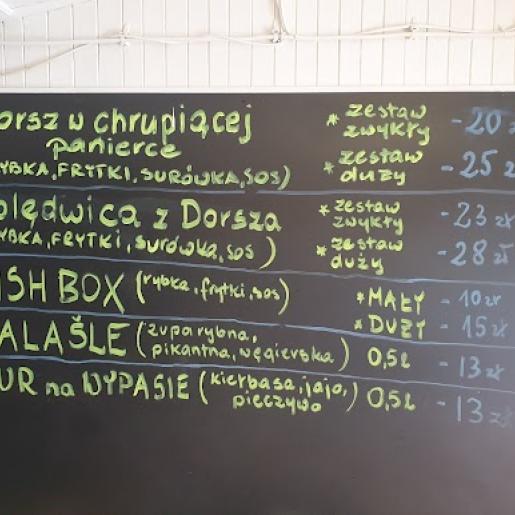 orsz w chrupiącej * zestaw zwykły - 20 z
panierce
YBKA, FRYTKI, SURÓWKA, SOS) * zestaw duży - 25 z
olędwica z Dorsza * zestaw zwykły - 23 zł
YBKA, FRYTKI, SURÓWKA, SOS) * zestaw duży - 28 zł
ISH BOX (rybka, frytki, sos) * MAŁY - 10 zł
* DUŻY - 15 zł
ALAŠLE (zupa rybna, pikantna, węgierska) 0,5l - 13 zł
UR na WYPASIE (kiełbasa, jajo, pieczywo) 0,5l - 13 zł